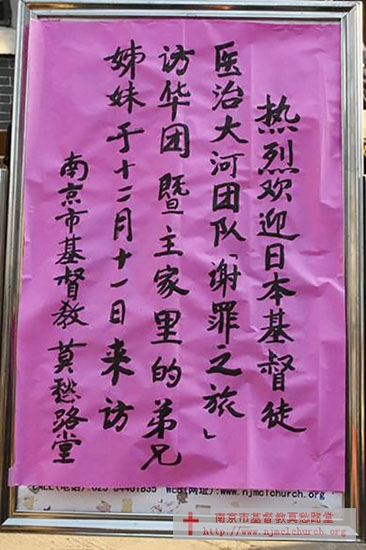 热烈欢迎日本基督徒
医治大河团队「谢罪之旅」
访华团暨主家里的弟兄
姊妹于十二月十一日来访
南京市基督教莫愁路堂
(网址):www.njmclchurch.org
南京市基督教莫愁路堂
http://www.njmclchurch.org